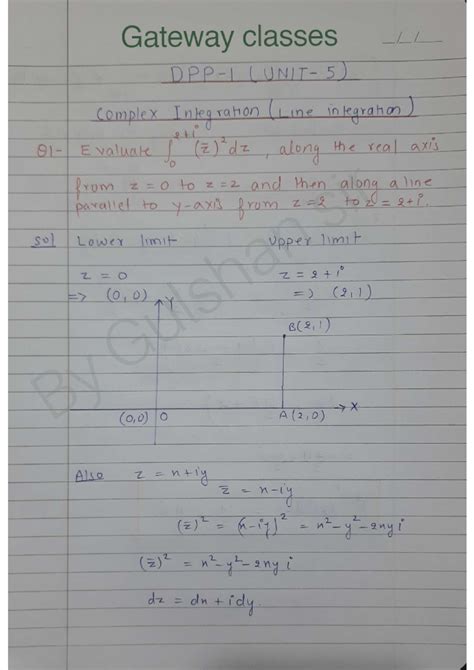 Gateway classes
_/_/_
DPP-1 (UNIT-5)
Complex Integration (Line integration)
Q1- Evaluate ∫₀²⁺ⁱ (z̄)² dz, along the real axis
from z=0 to z=2 and then along a line
parallel to y-axis from z=2 to z=2+i.
Sol Lower limit Upper limit
z = 0 z = 2+i
=> (0,0) => (2,1)
Y
B(2,1)
(0,0) O A(2,0) X
Also z = x+iy
z̄ = x-iy
(z̄)² = (x-iy)² = x²-y²-2xyi
(z̄)² = x²-y²-2xyi
dz = dx+idy.
By Gulshan sir